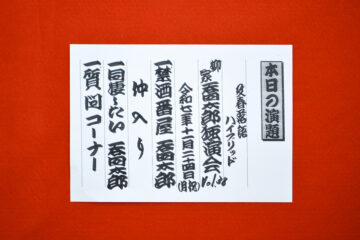 本日の演題
文春落語
ハイブリッド
柳家喬太郎独演会 Vol.38
令和七年十一月二十四日(月祝)
一禁酒番屋 喬太郎
仲入り
一同棲したい 喬太郎
一質問コーナー